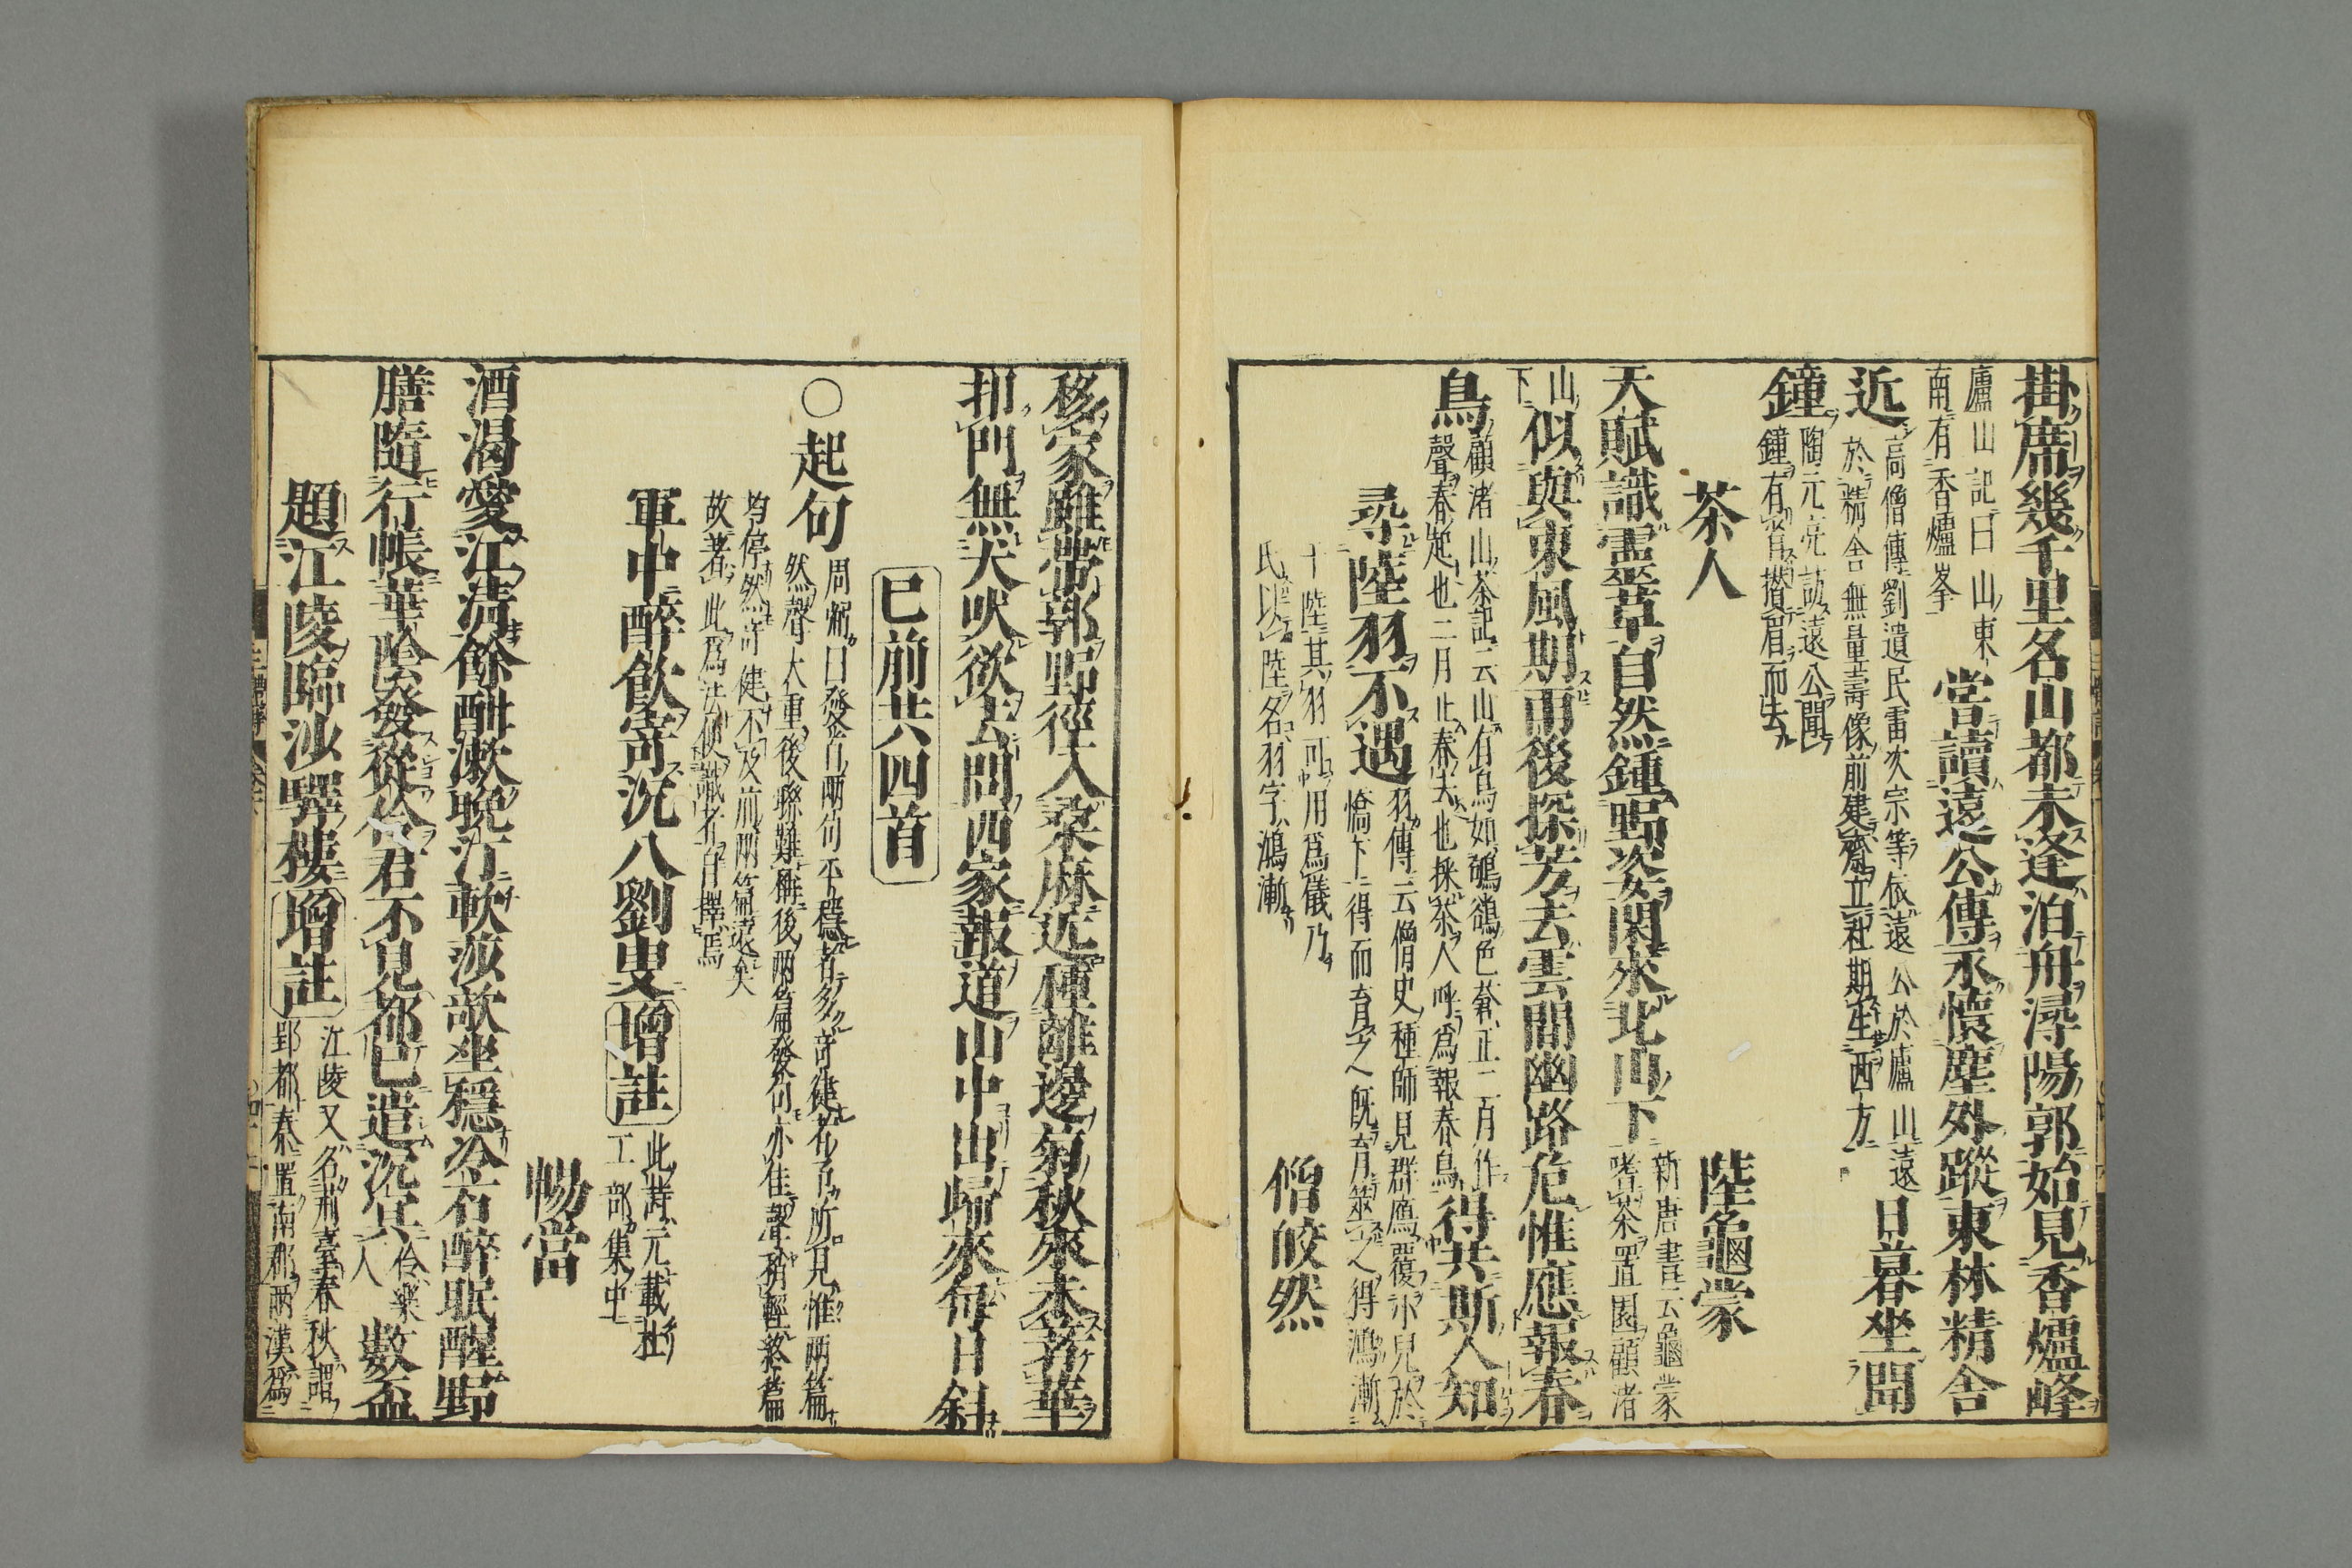 掛席幾千里名山都未逢泊舟潯陽郭始見香爐峰
廬山記曰山東
南有香爐峯
嘗讀遠公傳永懷塵外蹤東林精舍
近
高僧傳劉遺民雷次宗等依遠公於廬山遠
於精舍無量壽像前建齋立社期生西方
日暮坐聞
鐘
陶元亮訪遠公聞
鐘有省攢眉而去
茶人
陸龜蒙
天賦識靈草自然鍾野姿閑來北山下
新唐書云龜蒙
嗜茶置園顧渚
山
下
似與東風期雨後探芳去雲間幽路危惟應報春
鳥
顧渚山茶記云山有鳥如鴝鵒色蒼正二月作
聲春起也三月止春去也採茶人呼爲報春鳥
得共斯人知
尋陸羽不遇
羽傳云僧史種師見群鴈覆小兒於
橋下得而育之既育筮之得鴻漸
于陸其羽可用爲儀乃
氏以陸名羽字鴻漸
僧皎然
移家雖帶郭野徑入桑麻近種離邊菊秋來未著華
扣門無犬吠欲去問西家報道山中出歸來每日斜
已前共四首
○起句
周弼曰發首兩句平穩者多奇健者予所見惟兩篇
然聲大重後聯難稱後兩篇發句亦佳聲稍輕終篇
均停然奇健不及前兩篇遠矣
故著此爲法使識者自擇焉
軍中醉飲寄沈八劉叟
增註
此詩元載杜
工部集中
暢當
酒渴愛江清餘酣漱晚汀軟莎欹坐穩冷石醉眠醒野
膳隨行帳華陰發從伶君不見都已遣沉冥
伶樂
人
數盃
題江陵臨沙驛樓
增註
江陵又名荊臺春秋謂
郢都秦置南郡兩漢爲